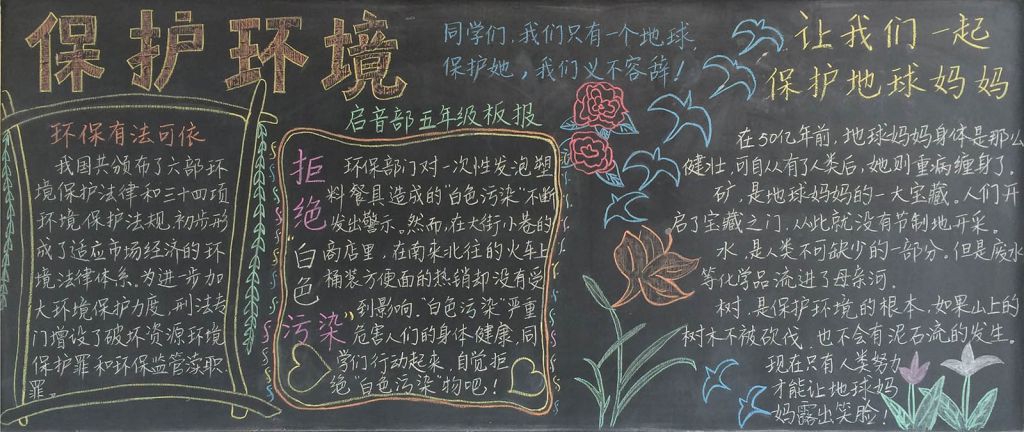 保护环境
同学们,我们只有一个地球,
保护她,我们义不容辞!
让我们一起
保护地球妈妈
启音部五年级板报
环保有法可依
我国共颁布了六部环
境保护法律和三十四项
环境保护法规,初步形
成了适应市场经济的环
境法律体系。为进一步加
大环境保护力度,刑法专
门增设了破坏资源环境
保护罪和环保监管渎职
罪。
拒绝"白色污染"
环保部门对一次性发泡塑
料餐具造成的"白色污染"不断
发出警示。然而,在大街小巷的
商店里,在南来北往的火车上
桶装方便面的热销却没有受
到影响。"白色污染"严重
危害人们的身体健康,同
学们行动起来,自觉拒
绝"白色污染"物吧!
在50亿年前,地球妈妈身体是那么
健壮,可自从有了人类后,她则重病缠身了。
矿,是地球妈妈的一大宝藏。人们开
启了宝藏之门,从此就没有节制地开采。
水,是人类不可缺少的一部分。但是废水
等化学品流进了母亲河。
树,是保护环境的根本,如果山上的
树木不被砍伐,也不会有泥石流的发生。
现在只有人类努力
才能让地球妈
妈露出笑脸!